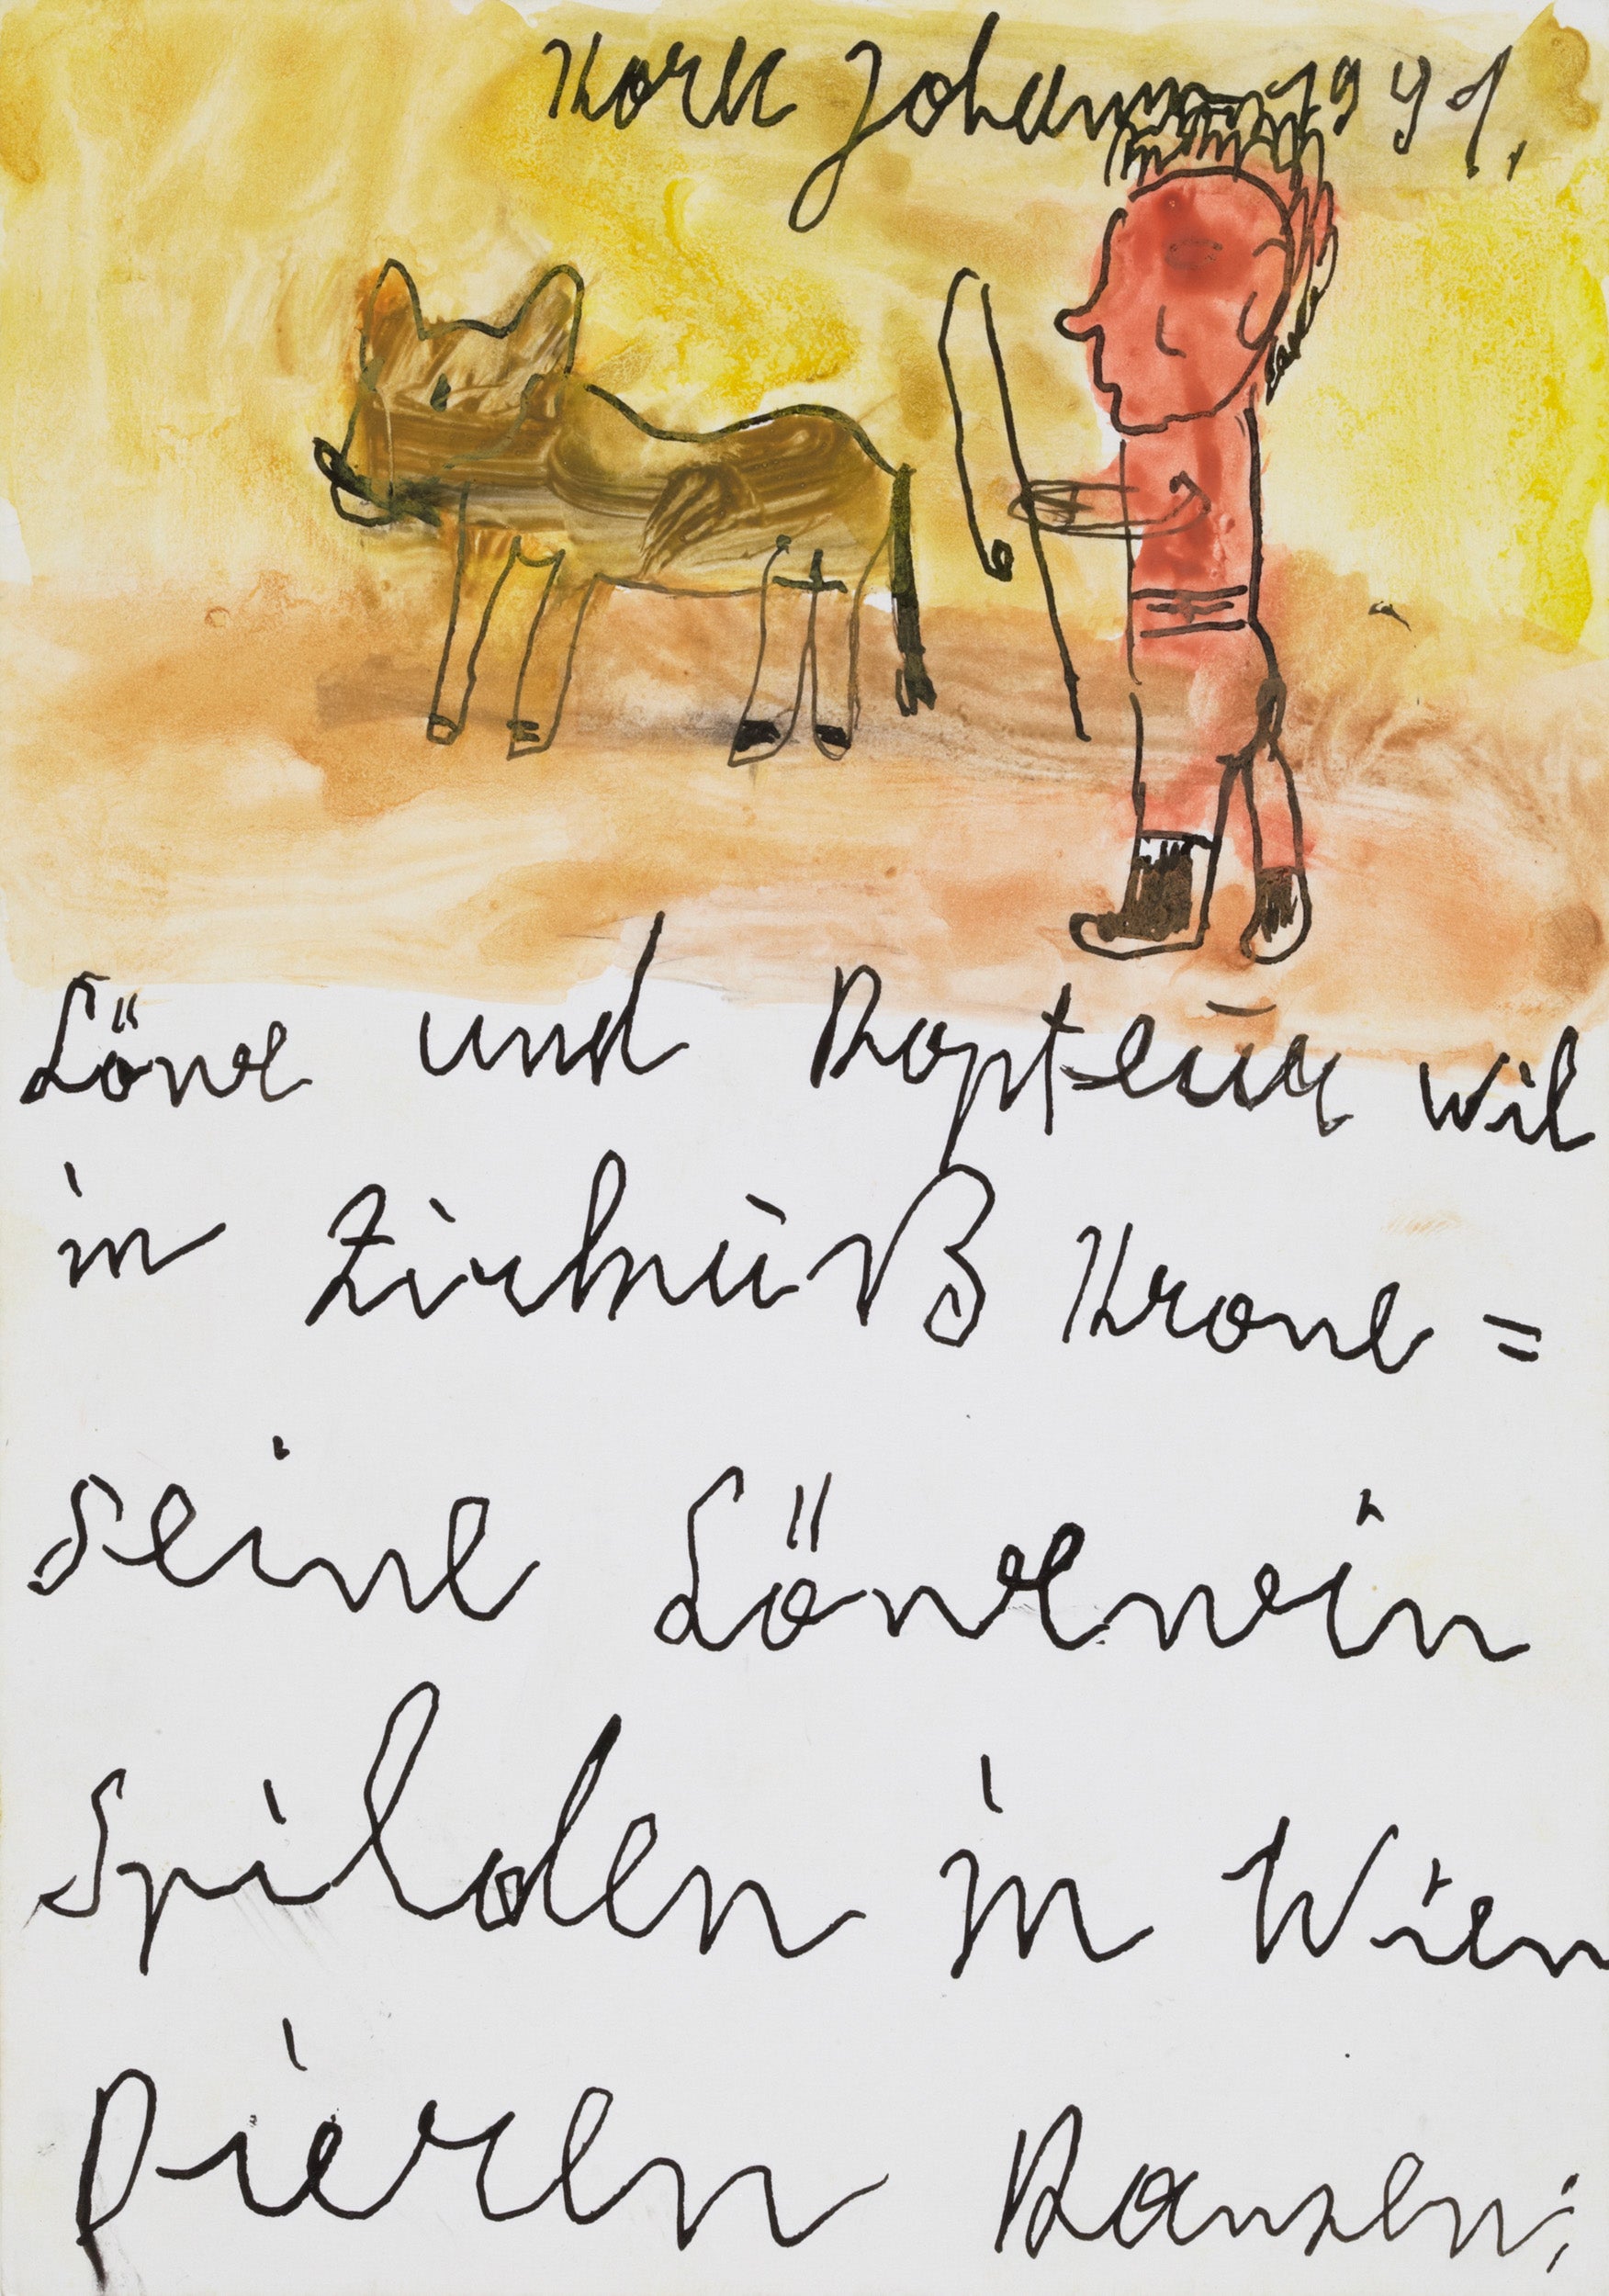 Korec Johann 1991.
Löwe und Dopteur wil
in Zirkuß Krone =
seine Löwenein
Spilden in Wien
Dieren Danzen;